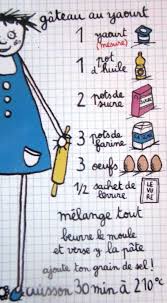 gâteau au yaourt
1 yaourt
(mesure)
1 pot
d'huile
2 pots de
sucre
SUCRE
3 pots de
farine
3 oeufs
1/2 sachet de
levure
LEVURE
mélange tout
beurre le moule
et verse y la pâte
ajoute ton grain de sel !
cuisson 30 min à 210°